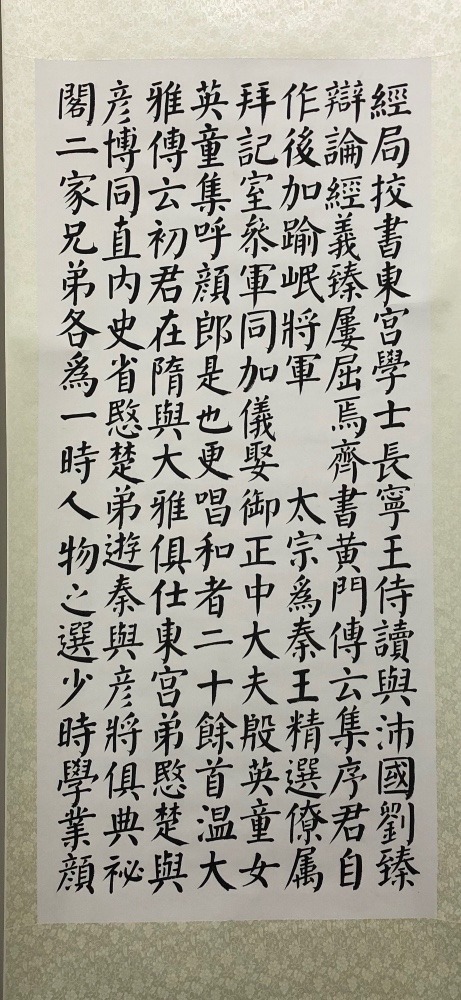 經局挍書東宮學士長寧王侍讀與沛國劉臻
辯論經義臻屢屈焉齊書黃門傳云集序君自
作後加踰岷將軍　太宗爲秦王精選僚属
拜記室叅軍同加儀娶御正中大夫殷英童女
英童集呼顏郎是也更唱和者二十餘首温大
雅傳云初君在隋與大雅俱仕東宮弟愍楚與
彦博同直内史省愍楚弟遊秦與彦將俱典祕
閣二家兄弟各爲一時人物之選少時學業顏